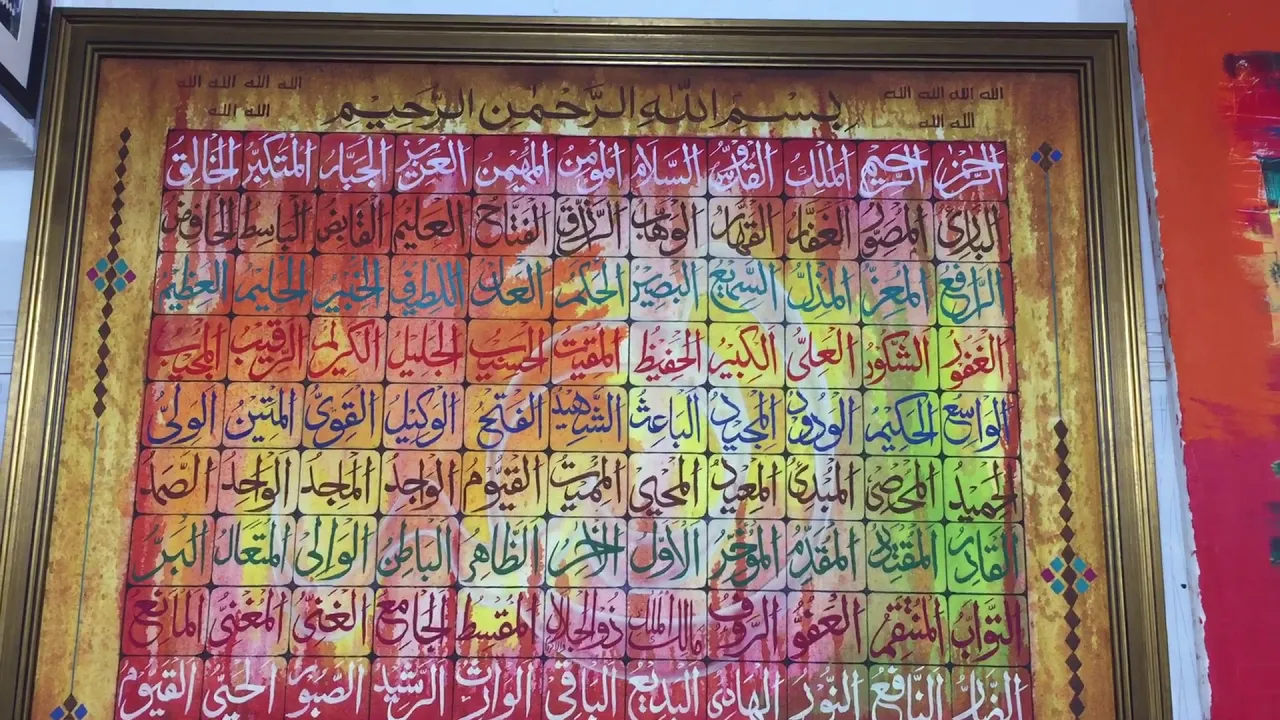 الله الله الله الله بِسْمِ اللَّهِ الرَّحْمٰنِ الرَّحِيْمِ الله الله الله الله
الله الله الله الله
الرحمن الرحيم الملك القدوس السلام المؤمن المهيمن العزيز الجبار المتكبر الخالق
البارئ المصور الغفار القهار الوهاب الرزاق الفتاح العليم القابض الباسط الخافض
الرافع المعز المذل السميع البصير الحكم العدل اللطيف الخبير الحليم العظيم
الغفور الشكور العلي الكبير الحفيظ المقيت الحسيب الجليل الكريم الرقيب المجيب
الواسع الحكيم الودود المجيد الباعث الشهيد الفتح الوكيل القوي المتين الولي
الحميد المحصي المبدئ المعيد المحيي المميت القيوم الواجد الماجد الواحد الصمد
القادر المقتدر المقدم المؤخر الأول الآخر الظاهر الباطن الوالي المتعال البر
التواب المنتقم العفو الرؤوف مالك الملك ذو الجلال المقسط الجامع الغني المغني المانع
الضار النافع النور الهادي البديع الباقي الوارث الرشيد الصبور الحي القيوم